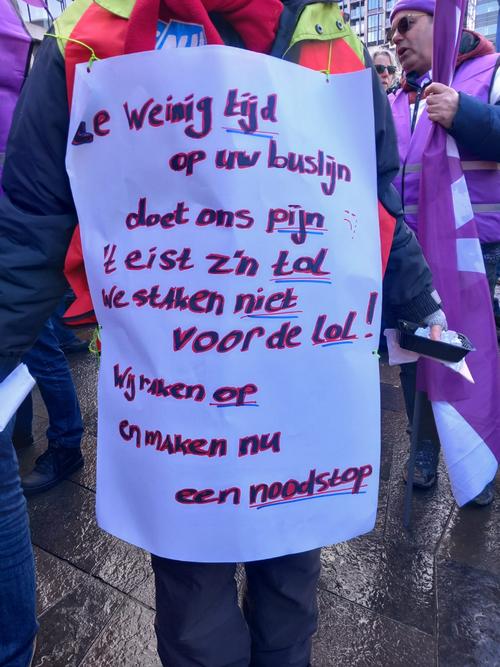 Te weinig tijd
op uw buslijn
doet ons pijn
't eist z'n tol
We staken niet
voor de lol!
Wij raken op
en maken nu
een noodstop